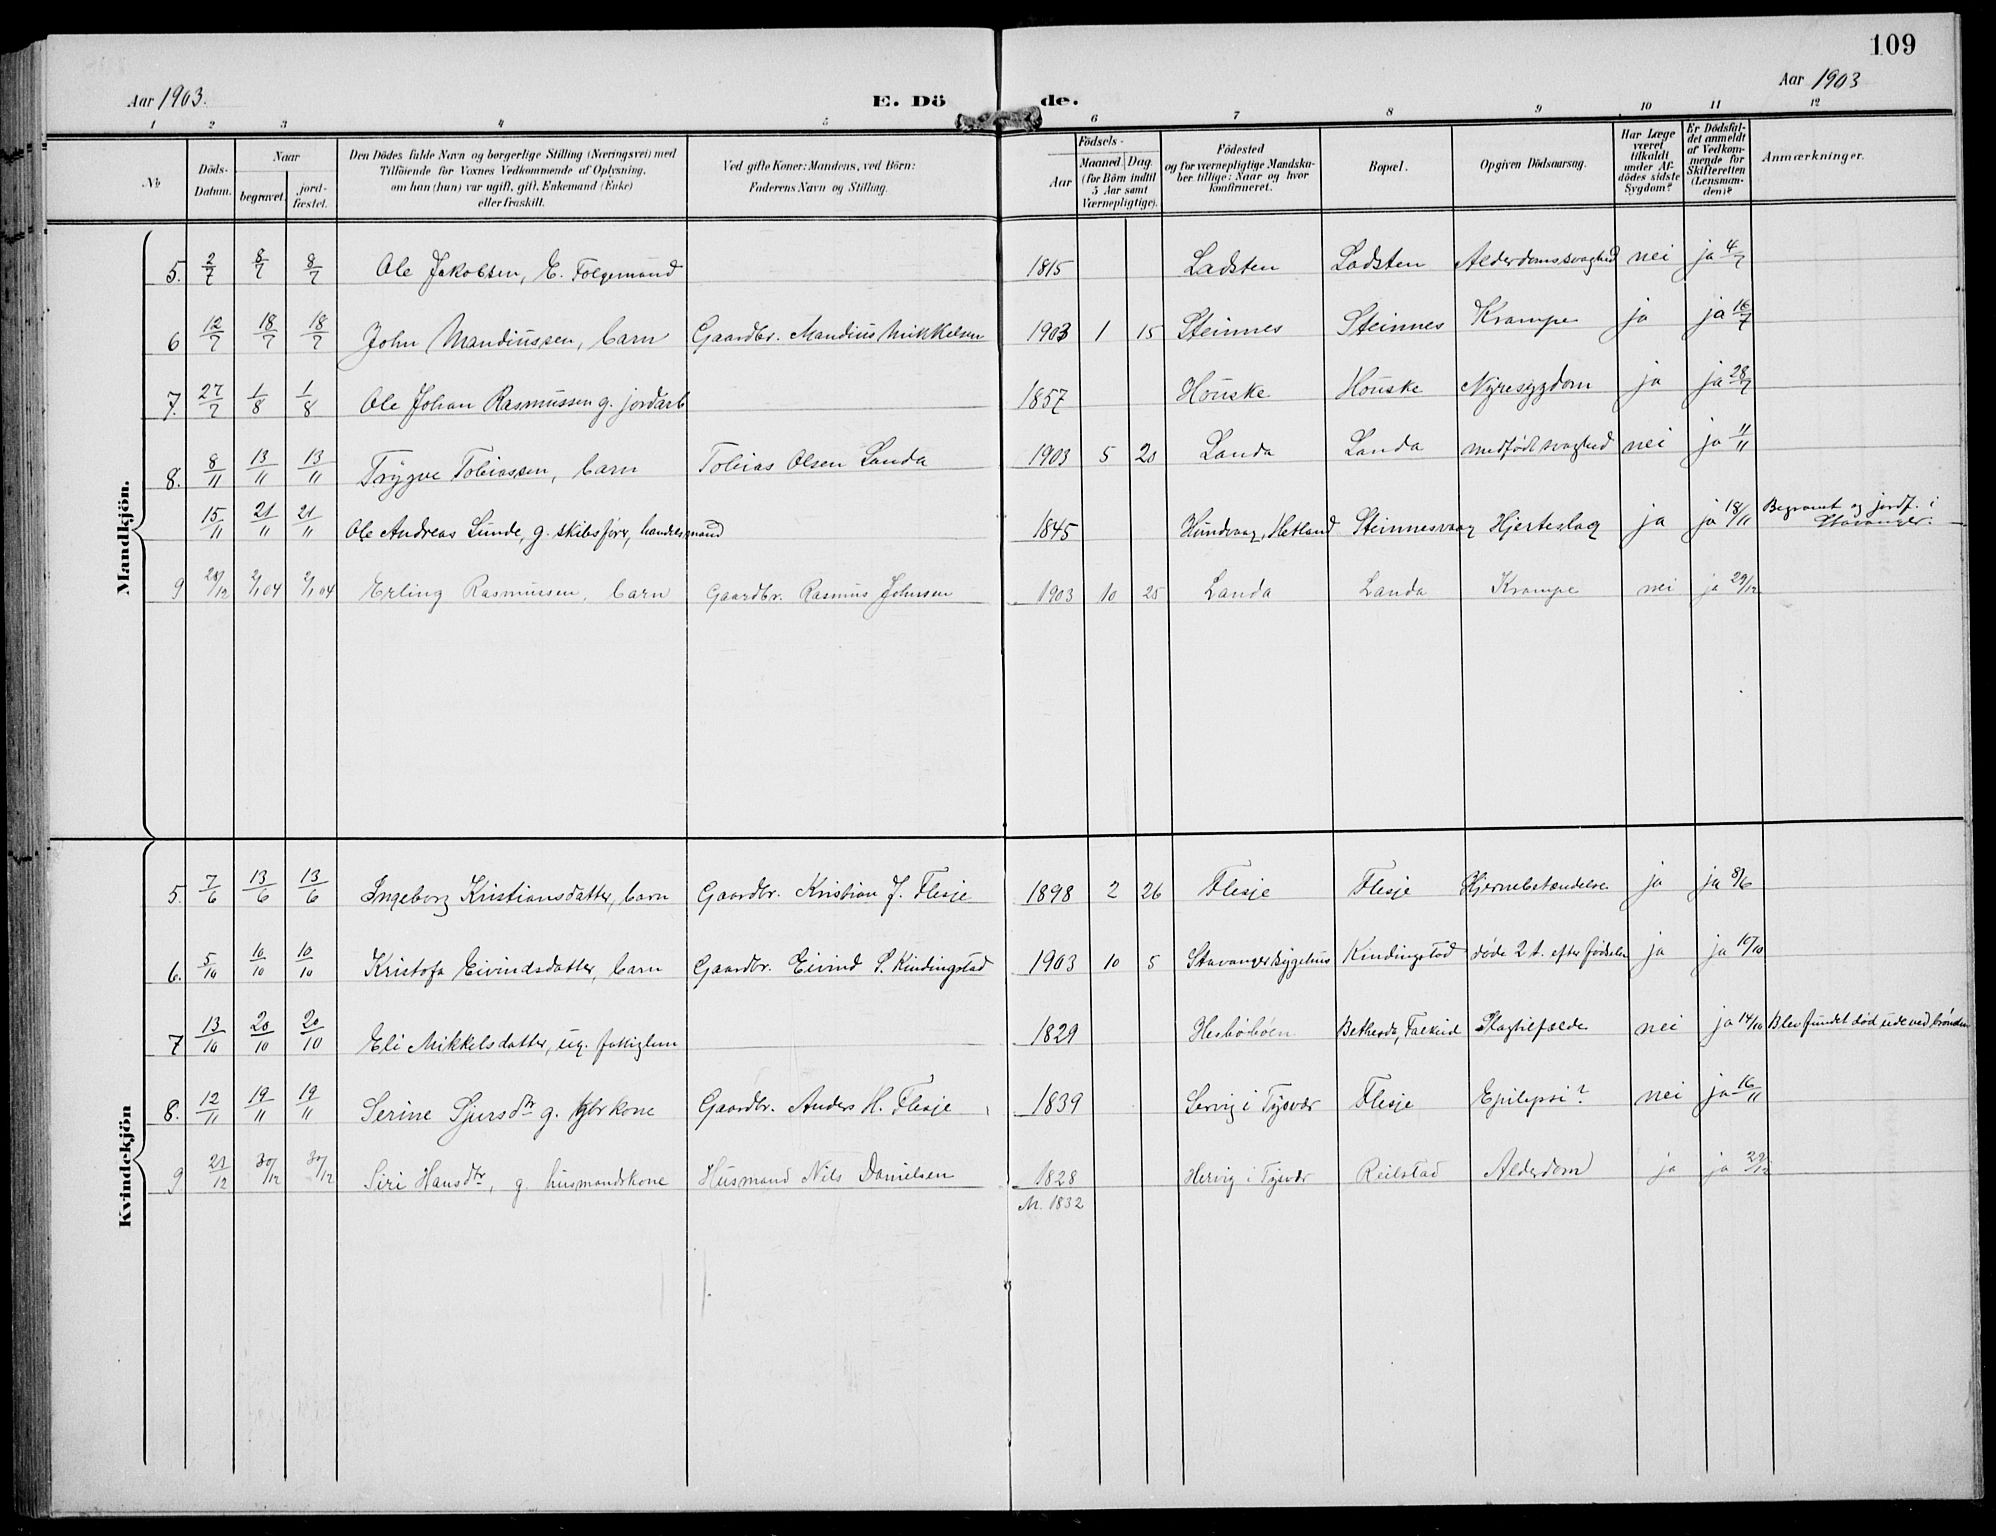 109
Aar 1903.
E. Dö
de.
Aar 1903
1 2 3 4 5 6 7 8 9 10 11 12
No
Döds-Datum.
Naar
begravet.
jord-fæstet.
Den Dödes fulde Navn og borgerlige Stilling (Næringsvei) med
Tilföiende for Voxnes Vedkommende af Oplysning,
om han (hun) var ugift, gift, Enkemand (Enke)
eller fraskilt.
Ved gifte Koner: Mandens, ved Börn:
Faderens Navn og Stilling.
Födsels-
Aar
Maaned. Dag.
(for Börn indtil
5 Aar samt
Værnepligtige).
Födested
og for værnepligtige Mandska-
ber tillige: Naar og hvor
konfirmeret.
Bopæl.
Opgiven Dödsaarsag.
Har Læge
været
tilkaldt
under Af-
dödes sidste
Sygdom?
Er Dödsfal-
det anmeldt
af Vedkom-
mende for
Skifteretten
(Lensman-
den)?
Anmærkninger.
Mandkjön.
5. 2/7 8/7 8/7 Ole Jakobsen, E. Folgemand 1815 Ladsten Ladsten Alderdomssvaghed nei ja 4/7
6 12/7 18/7 18/7 John Mandiussen, barn Gaardbr. Mandius Mikkelsen 1903 1 15 Steinnes Steinnes Krampe ja ja 16/7
7. 27/7 1/8 1/8 Ole Johan Rasmussen g. jordarb 1857 Houske Houske Nyresygdom ja ja 28/7
8. 8/11 13/11 13/11 Trygve Tobiassen, barn Tobias Olsen Landa 1903 5 20 Landa Landa medfödt svaghed nei ja 11/11
15/11 21/11 21/11 Ole Andreas Lunde, g. skibsförer, handelsmand 1845 Hundvaag, Hetland Steinnesvaag Hjerteslag ja ja 18/11 Begravet og jordf. i
Stavanger.
9 28/12 2/1 04 2/1 04 Erling Rasmussen, barn Gaardbr. Rasmus Johnsen 1903 10 25 Landa Landa Krampe nei ja 29/12
Kvindekjön
5. 7/6 13/6 13/6 Ingeborg Kristiansdatter, barn Gaardbr. Kristian J. Flesje 1898 2 26 Flesje Flesje Hjernebetændelse ja ja 8/6
6. 5/10 10/10 10/10 Kristofa Eivindsdatter, barn Gaardbr. Eivind S. Kindingstad 1903 10 5 Stavanger Kindingstad döde 2 t. efter födselen ja ja 10/10
7 13/10 20/10 20/10 Eli Mikkelsdatter, ug. fattiglem 1829 Hesböböen Falkeid Slagtilfælde nei ja 14/10 Blev fundet död ude ved brönden
8. 12/11 19/11 19/11 Serine Sjursdtr g. gbrkone Gaardbr. Anders H. Flesje 1839 Hervig i Tysvær Flesje Epilepsi? nei ja 16/11
9 21/12 30/12 30/12 Siri Hansdtr, g. husmandskone Husmand Nils Danielsen 1828 Hervig i Tysvær Reilstad Alderdom ja ja 29/12
M. 1832